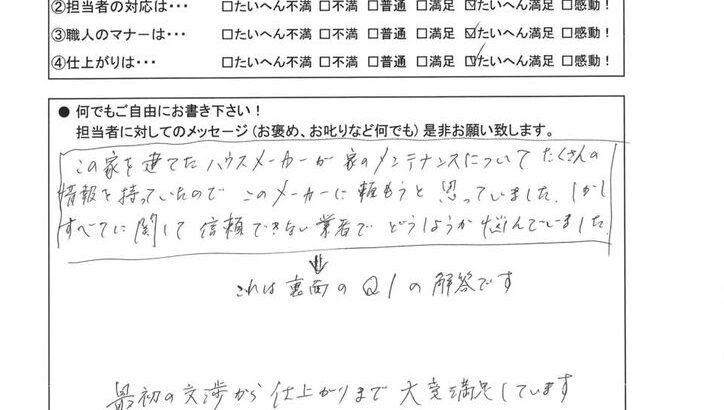 ②担当者の対応は･･･ □たいへん不満 □不満 □普通 □満足 ☑たいへん満足 □感動！
③職人のマナーは･･･ □たいへん不満 □不満 □普通 □満足 ☑たいへん満足 □感動！
④仕上がりは･･･ □たいへん不満 □不満 □普通 □満足 ☑たいへん満足 □感動！
● 何でもご自由にお書き下さい！
担当者に対してのメッセージ（お褒め、お叱りなど何でも）是非お願い致します。
この家を建てたハウスメーカーが家のメンテナンスについてたくさんの
情報を持っていたので このメーカーに頼もうと思っていました。しかし
すべてに関して信頼できない業者で どうしようか悩んでいました。
⇓
これは裏面のQ1の解答です
最初の交渉から仕上がりまで大変満足しています